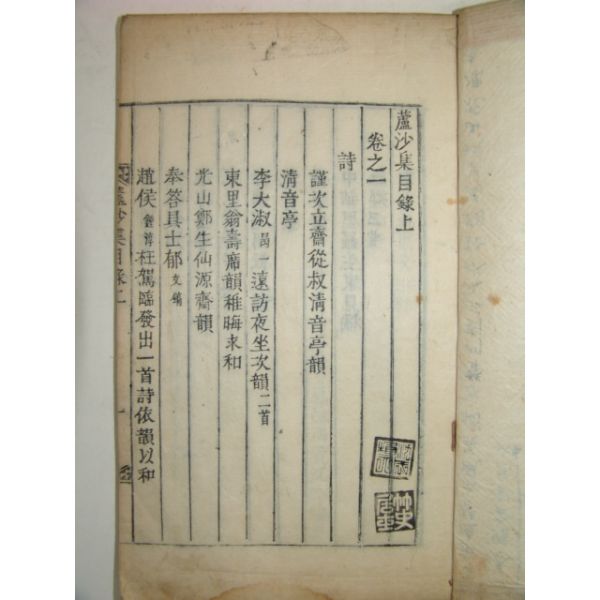 蘆沙集目錄上
卷之一
詩
謹次立齋從叔清音亭韻
清音亭
李大淑 一遠訪夜坐次韻 二首
東里翁壽席韻稚晦求和
光山鄭生仙源齋韻
奉答具士郁 文
趙侯 枉駕臨發出一首詩依韻以和
蘆沙集目錄上
一